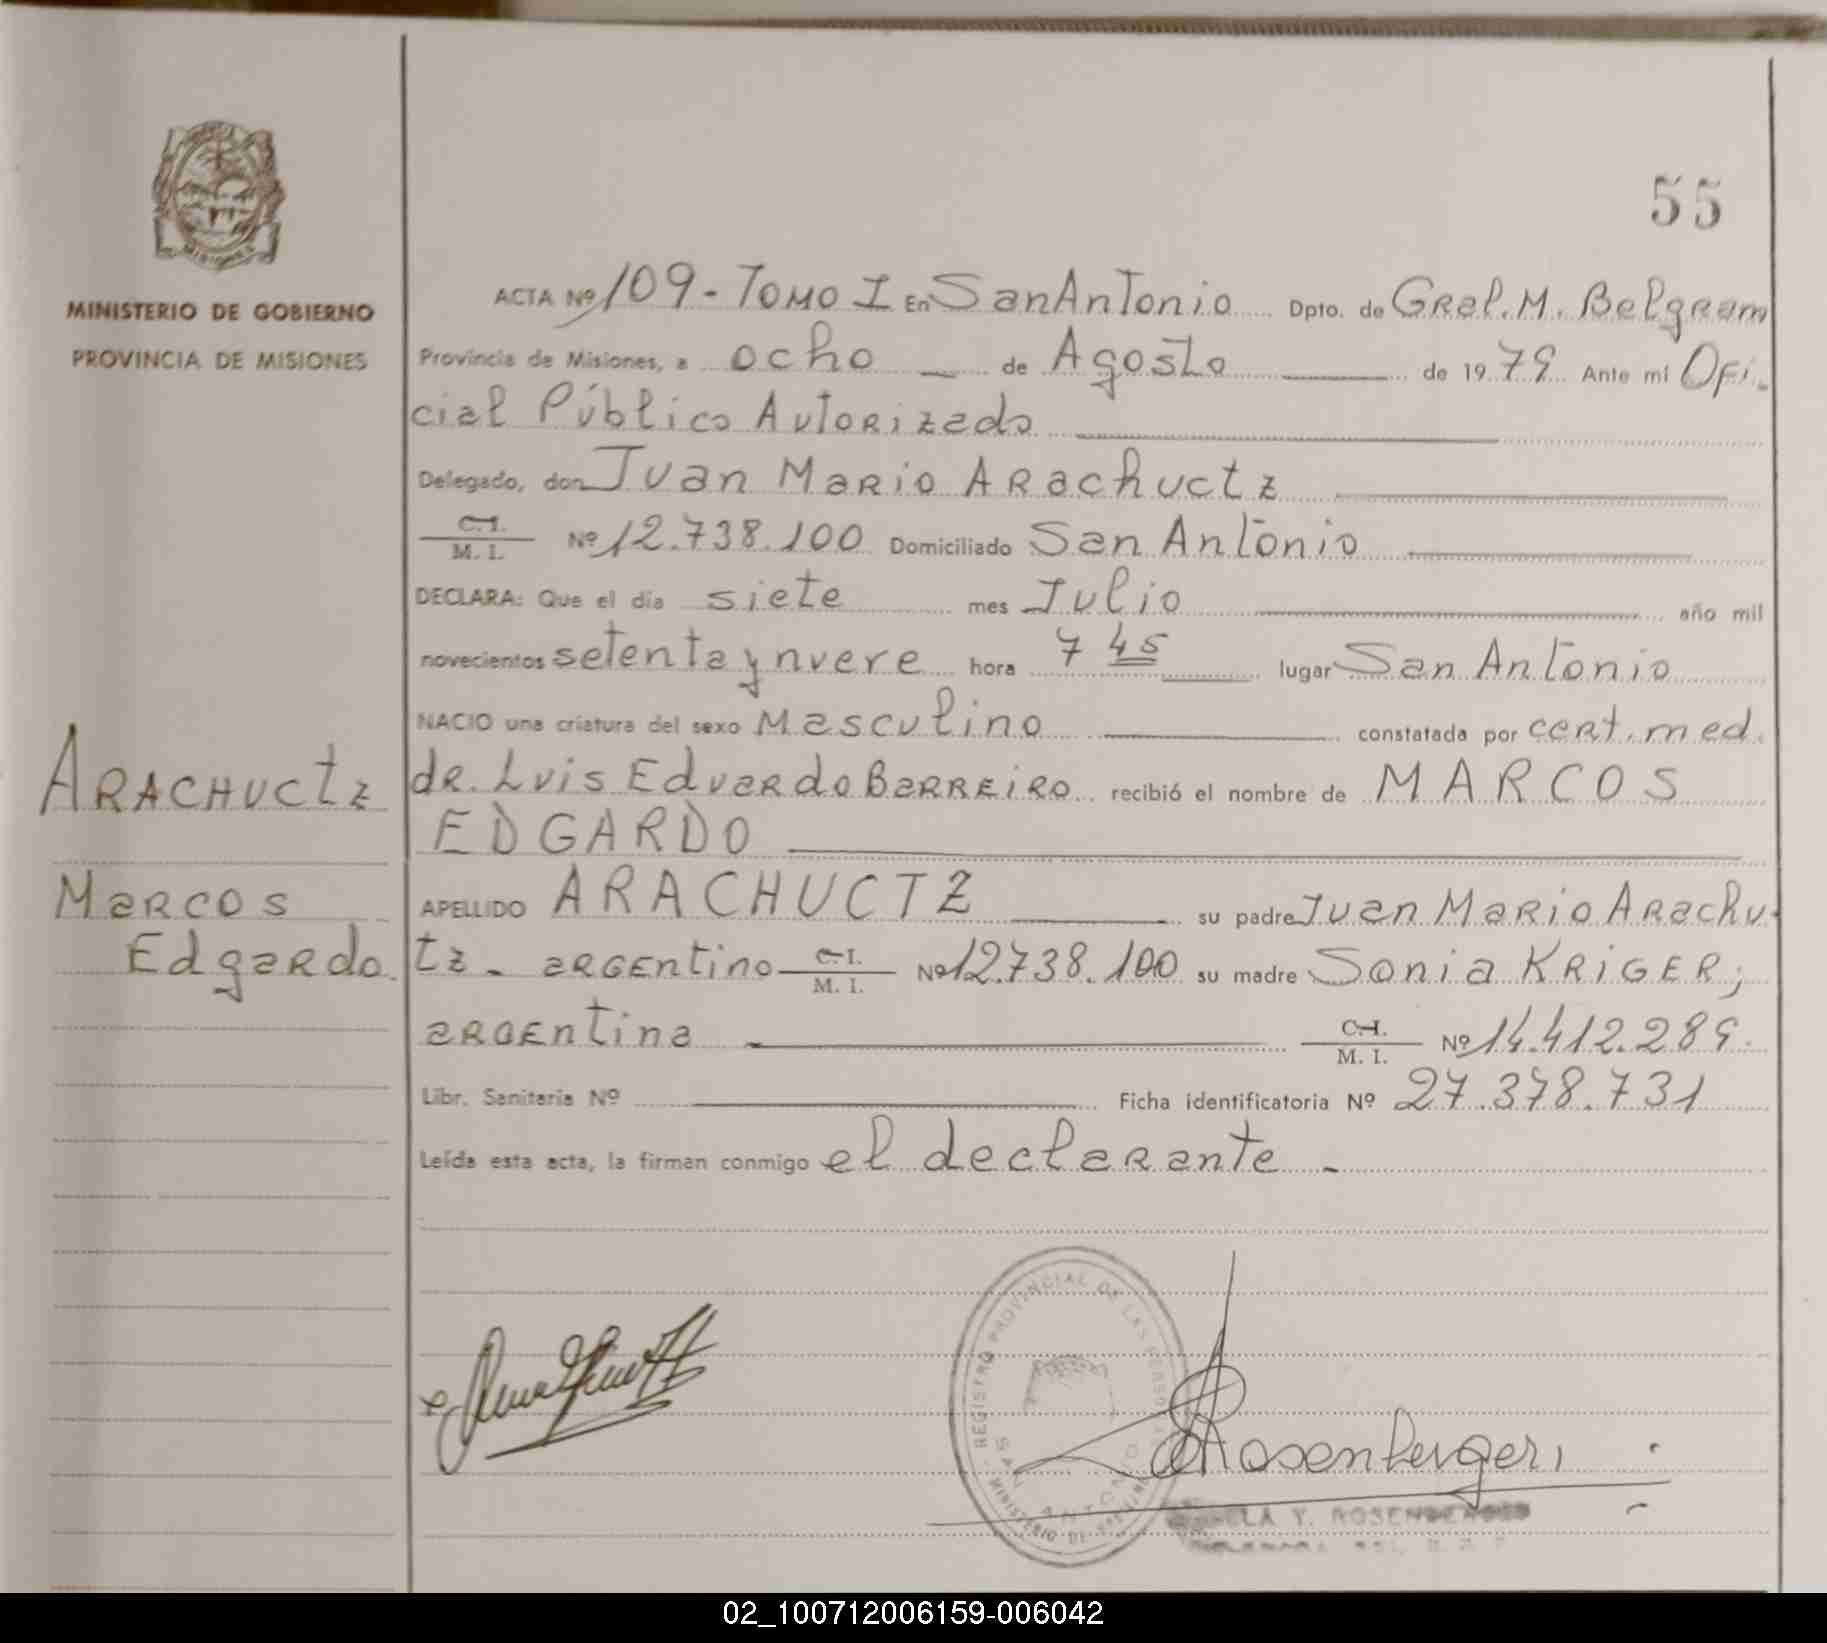 55
MINISTERIO DE GOBIERNO
PROVINCIA DE MISIONES
ACTA Nº 109 - Tomo I En San Antonio Dpto. de Gral. M. Belgrano
Provincia de Misiones, a ocho de Agosto de 1979 Ante mí Ofi-
cial Público Autorizado
Delegado, don Juan Mario Arachuctz
C.I. / M. I. Nº 12.738.100 Domiciliado San Antonio
DECLARA: Que el día siete mes Julio año mil
novecientos setenta y nueve hora 7 45 lugar San Antonio
NACIO una criatura del sexo Masculino constatada por cert. med.
dr. Luis Eduardo Barreiro recibió el nombre de MARCOS
EDGARDO
APELLIDO ARACHUCTZ su padre Juan Mario Arachu-
tz - argentino C.I. / M. I. Nº 12.738.100 su madre Sonia KRIGER;
argentina C.I. / M. I. Nº 14.412.289.
Libr. Sanitaria Nº Ficha identificatoria Nº 27.378.731
Leída esta acta, la firman conmigo el declarante -
ARACHUCtz
Marcos
Edgardo.
REGISTRO PROVINCIAL DE LAS PERSONAS
SAN ANTONIO
MINISTERIO DE GOBIERNO
Rosenberger
Y. ROSENBERGER
02_100712006159-006042